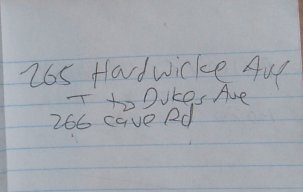 265 Hardwicke Ave
T to Dukes Ave
266 Cave Rd